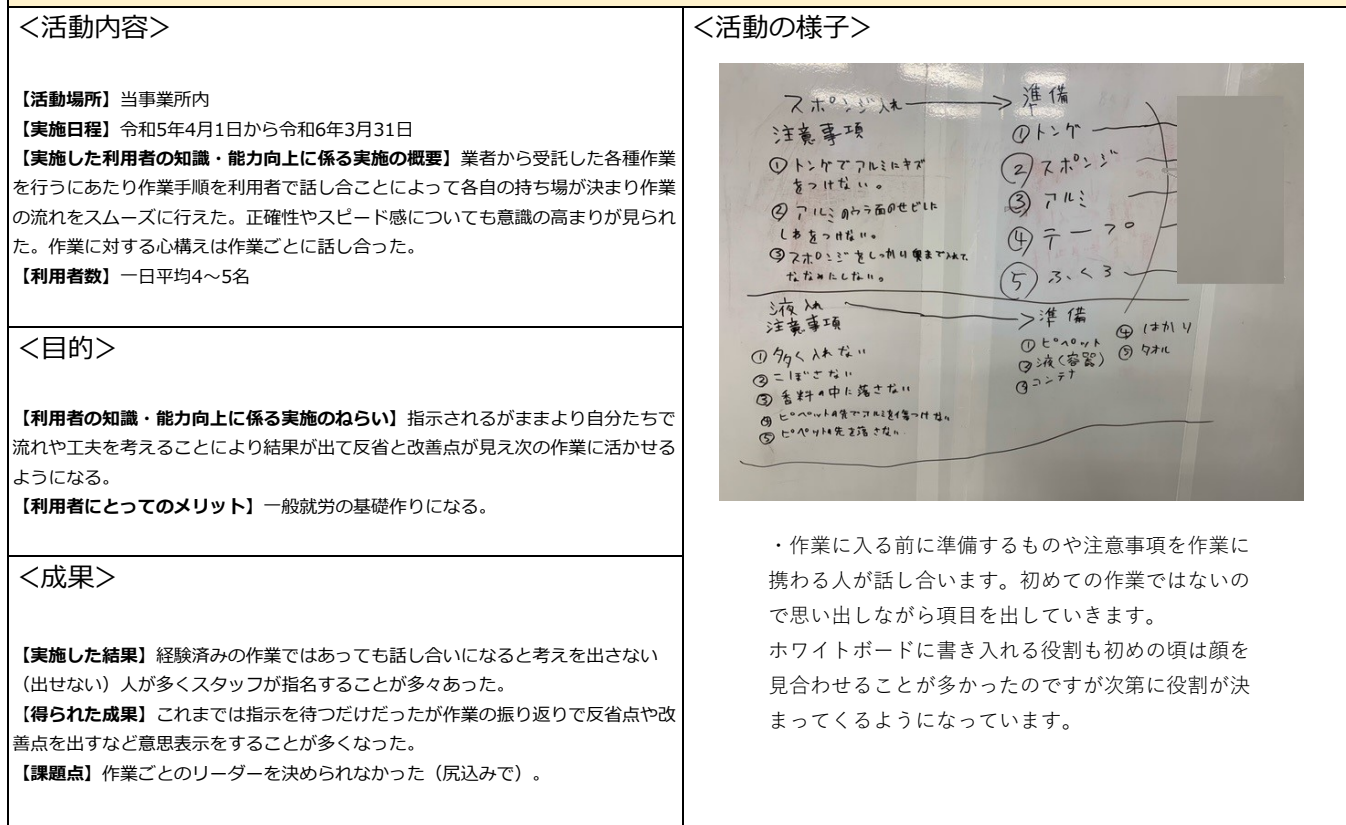 ＜活動内容＞
【活動場所】当事業所内
【実施日程】令和5年4月1日から令和6年3月31日
【実施した利用者の知識・能力向上に係る実施の概要】業者から受託した各種作業
を行うにあたり作業手順を利用者で話し合ことによって各自の持ち場が決まり作業
の流れをスムーズに行えた。正確性やスピード感についても意識の高まりが見られ
た。作業に対する心構えは作業ごとに話し合った。
【利用者数】一日平均4～5名
＜目的＞
【利用者の知識・能力向上に係る実施のねらい】指示されるがままより自分たちで
流れや工夫を考えることにより結果が出て反省と改善点が見え次の作業に活かせる
ようになる。
【利用者にとってのメリット】一般就労の基礎作りになる。
＜成果＞
【実施した結果】経験済みの作業ではあっても話し合いになると考えを出さない
（出せない）人が多くスタッフが指名することが多々あった。
【得られた成果】これまでは指示を待つだけだったが作業の振り返りで反省点や改
善点を出すなど意思表示をすることが多くなった。
【課題点】作業ごとのリーダーを決められなかった（尻込みで）。
＜活動の様子＞
スポンジ入れ
注意事項
①トングでアルミにキズ
をつけない。
②アルミのウラ面のせどした
しわをつけない。
③スポンジをしっかり奥まで入れて、
ななめにしない。
準備
①トング
②スポンジ
③アルミ
④テープ
⑤ふくろ
液入れ
注意事項
①多く入れない
②こぼさない
③香料の中に落さない
④ピペットの先でアルミを傷つけない
⑤ピペットの先を落さない
準備
①ピペット
②液(容器)
③コンテナ
④はかり
⑤タオル
・作業に入る前に準備するものや注意事項を作業に
携わる人が話し合います。初めての作業ではないの
で思い出しながら項目を出していきます。
ホワイトボードに書き入れる役割も初めの頃は顔を
見合わせることが多かったのですが次第に役割が決
まってくるようになっています。